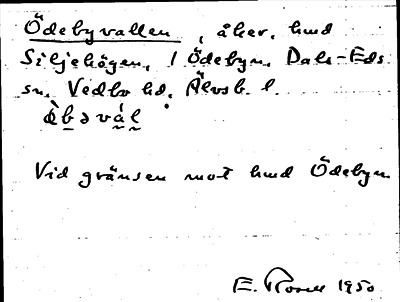 Ödebyvallen, åker, hmd
Siljehögen, 1 Ödebyn, Dals-Eds
sn, Vedbo hd. Älvsb. l.
Vid gränsen mot hmd Ödebyn
E. 1950